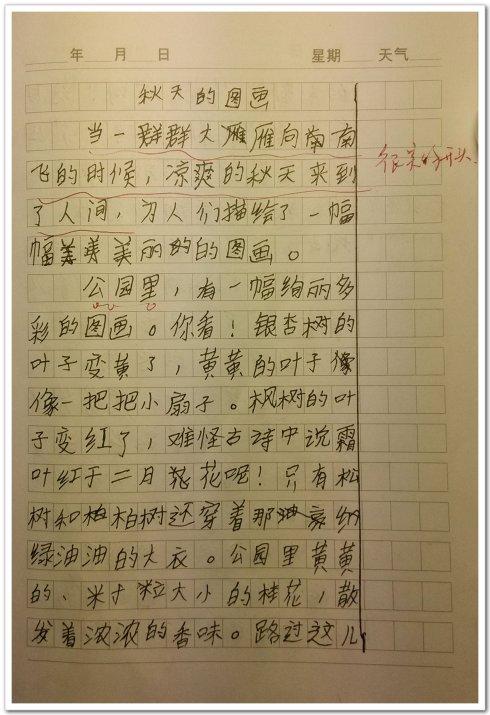 年 月 日 星期 天气
秋天的图画
当一群群大雁雁向南南
很美的开头
飞的时候，凉爽的秋天来到
了人间，为人们描绘了一幅
幅美美美丽的的图画。
公园里，有一幅绚丽多
彩的图画。你看！银杏树的
叶子变黄了，黄黄的叶子像
像一把把小扇子。枫树的叶
子变红了，难怪古诗中说霜
叶红于二月花花呢！只有松
树和柏柏树还穿着那油亮的
绿油油的大衣。公园里黄黄
的、米寸粒大小的桂花，散
发着浓浓的香味。路过这儿